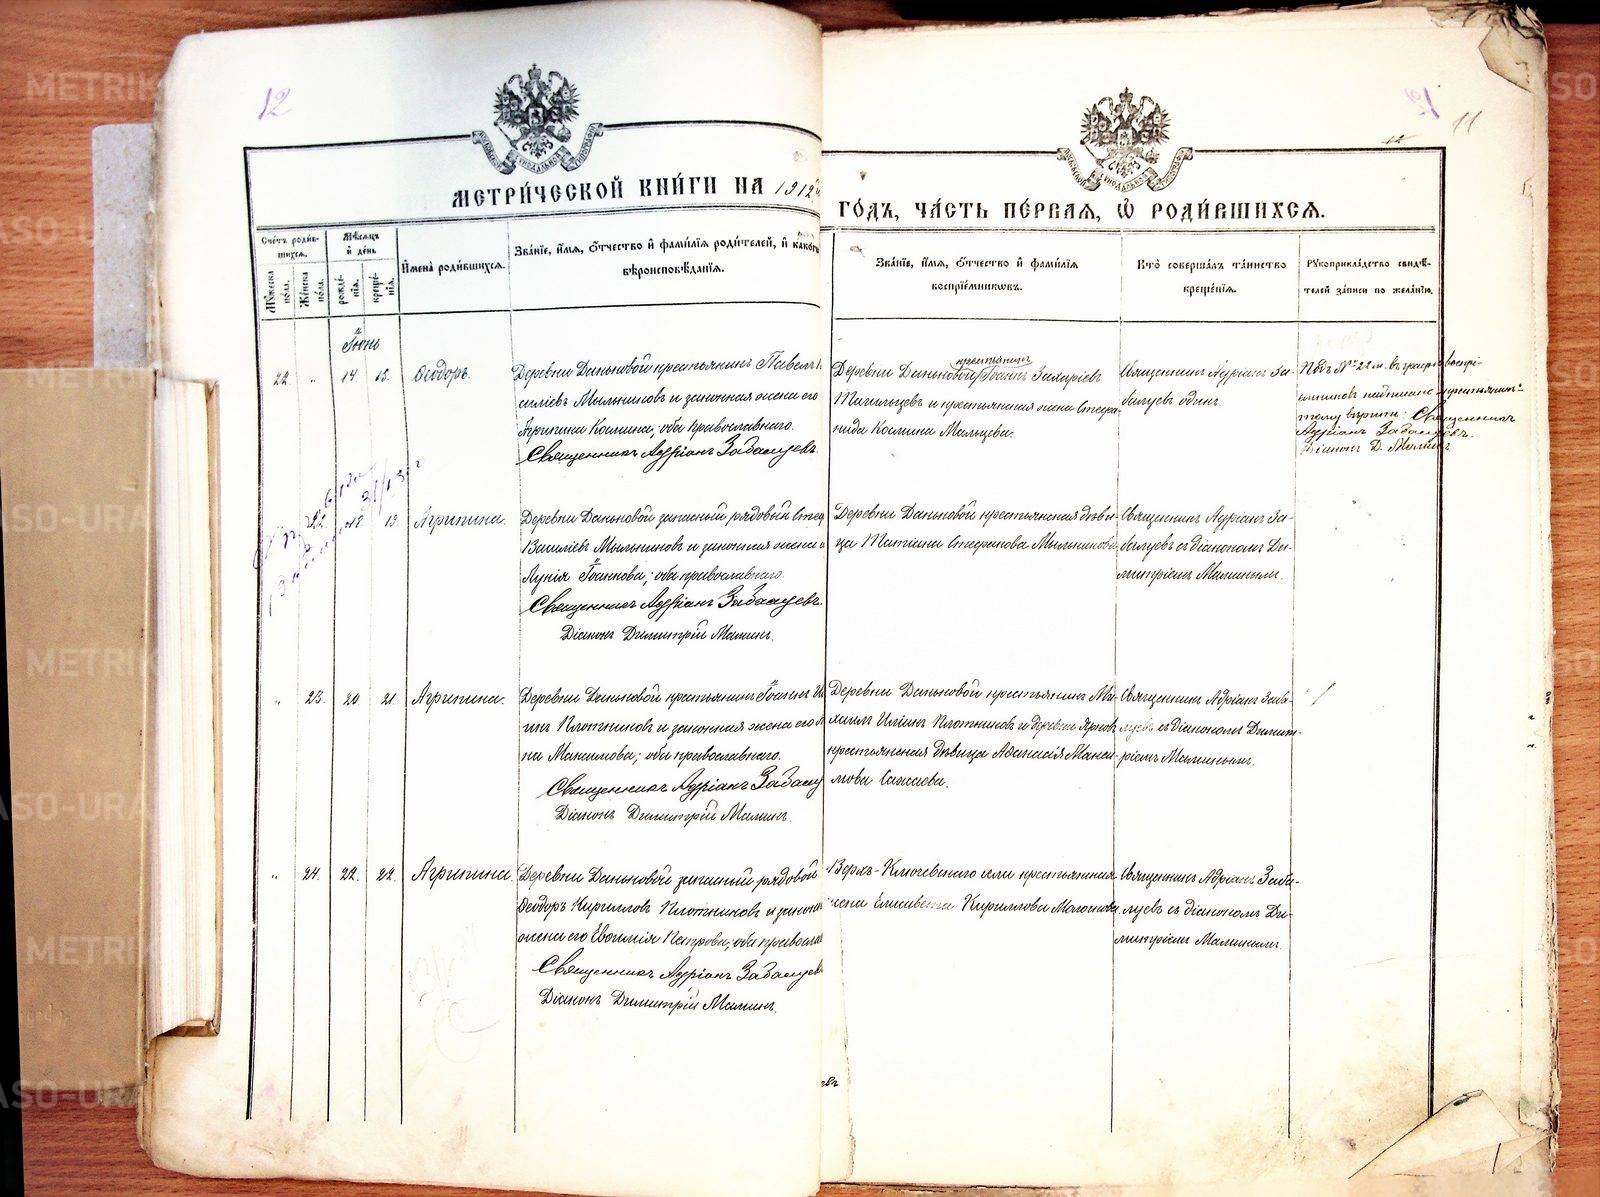 12
12
11
МЕТРИ́ЧЕСКОЙ КНИ́ГИ НА 1912
ГО́ДЪ, ЧА́СТЬ ПЕ́РВАЯ, Ѡ҆ РОДИ́ВШИХСЯ.
Сче́тъ роди́в-
шихся.
Мѣ́сяцъ
и҆ де́нь
Му́жеска по́ла.
Же́нска по́ла.
рожде́-
нїя.
креще́-
нїя.
И҆мена̀ роди́вшихся.
Зва́нїе, и҆́мя, ѻ҆́тчество и҆ фами́лїя роди́телей, и҆ како́гѡ
вѣроисповѣ́данїя.
Зва́нїе, и҆́мя, ѻ҆́тчество и҆ фами́лїя
воспрїе́мниковъ.
Кто̀ соверша́лъ та́инство
креще́нїя.
Рꙋкоприкла́дство свидѣ́-
телей за́писи по жела́нїю.
Іюнь
22. „ 14. 15. Ѳеодоръ.
Деревни Даньковой крестьянинъ Павелъ
Мыльниковъ и законная жена его
Агрипина Космина, оба православнаго.
Священникъ Адріанъ Забалуевъ.
крестьянинъ
Деревни Даньковой Іоаннъ Захаріевъ
и крестьянская жена Стефа-
нида Космина Мальцева.
Священникъ Адріанъ За-
балуевъ одинъ.
Подъ № 22 м. въ графѣ воспрі-
емниковъ надписано „крестьянинъ“
тому вѣрить: Священникъ
Адріанъ Забалуевъ.
Діаконъ Д. Маминъ.
22. 18. 19. Агрипина.
Деревни Даньковой запасный рядовой Стеф
Василіевъ Мыльниковъ и законная жена
Лукія Іоаннова; оба православнаго.
Священникъ Адріанъ Забалуевъ.
Діаконъ Димитрій Маминъ.
Деревни Даньковой крестьянская дѣви-
ца Татіана Стефанова Мыльникова
Священникъ Адріанъ За-
балуевъ съ діакономъ Ди-
митріемъ Маминымъ.
„ 23. 20. 21. Агрипина.
Деревни Даньковой крестьянинъ Іоаннъ И
инъ Плотниковъ и законная жена его А
на Макимова; оба православнаго.
Священникъ Адріанъ Забалу
Діаконъ Димитрій Маминъ.
Деревни Даньковой крестьянинъ
Илиинъ Плотниковъ и деревни
крестьянская дѣвица Аѳанасія Макси-
мова
Священникъ Адріанъ Заба-
луевъ съ діакономъ Димит-
ріемъ Маминымъ.
„ 24. 22. 22. Агрипина.
Деревни Даньковой запасный рядовой
Ѳеодоръ Кирилловъ Плотниковъ и законн
жена его Евѳимія Петрова; оба правосла
Священникъ Адріанъ Забалуев
Діаконъ Димитрій Маминъ.
Верхъ-Ключевскаго села крестьянская
жена Елисавета Кириллова
Священникъ Адріанъ Заба-
луевъ съ діакономъ Ди-
митріемъ Маминымъ.